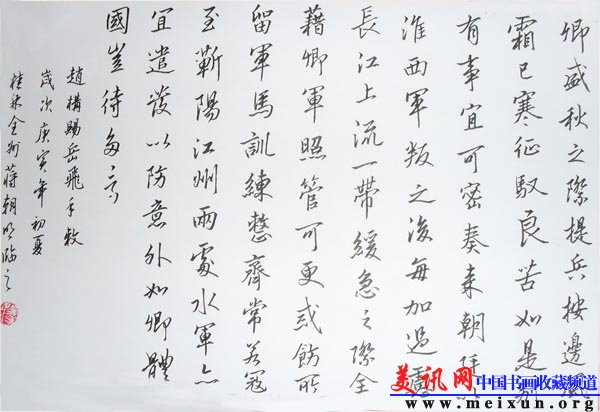 卿盛秋之際提兵按邊風
霜已寒征馭良苦如是別
有事宜可密奏來朝廷以
淮西軍叛之後每加過慮
長江上流一帶緩急之際全
藉卿軍照管可更或飭所
留軍馬訓練整齊常若寇
至蘄陽江州兩處水軍亦
宜遣發以防意外如卿體
國豈待多言
趙構賜岳飛手敕
歲次庚寅年初夏
桂林全州蔣朝明臨之
美讯网
中国书画收藏频道
www.meixun.org